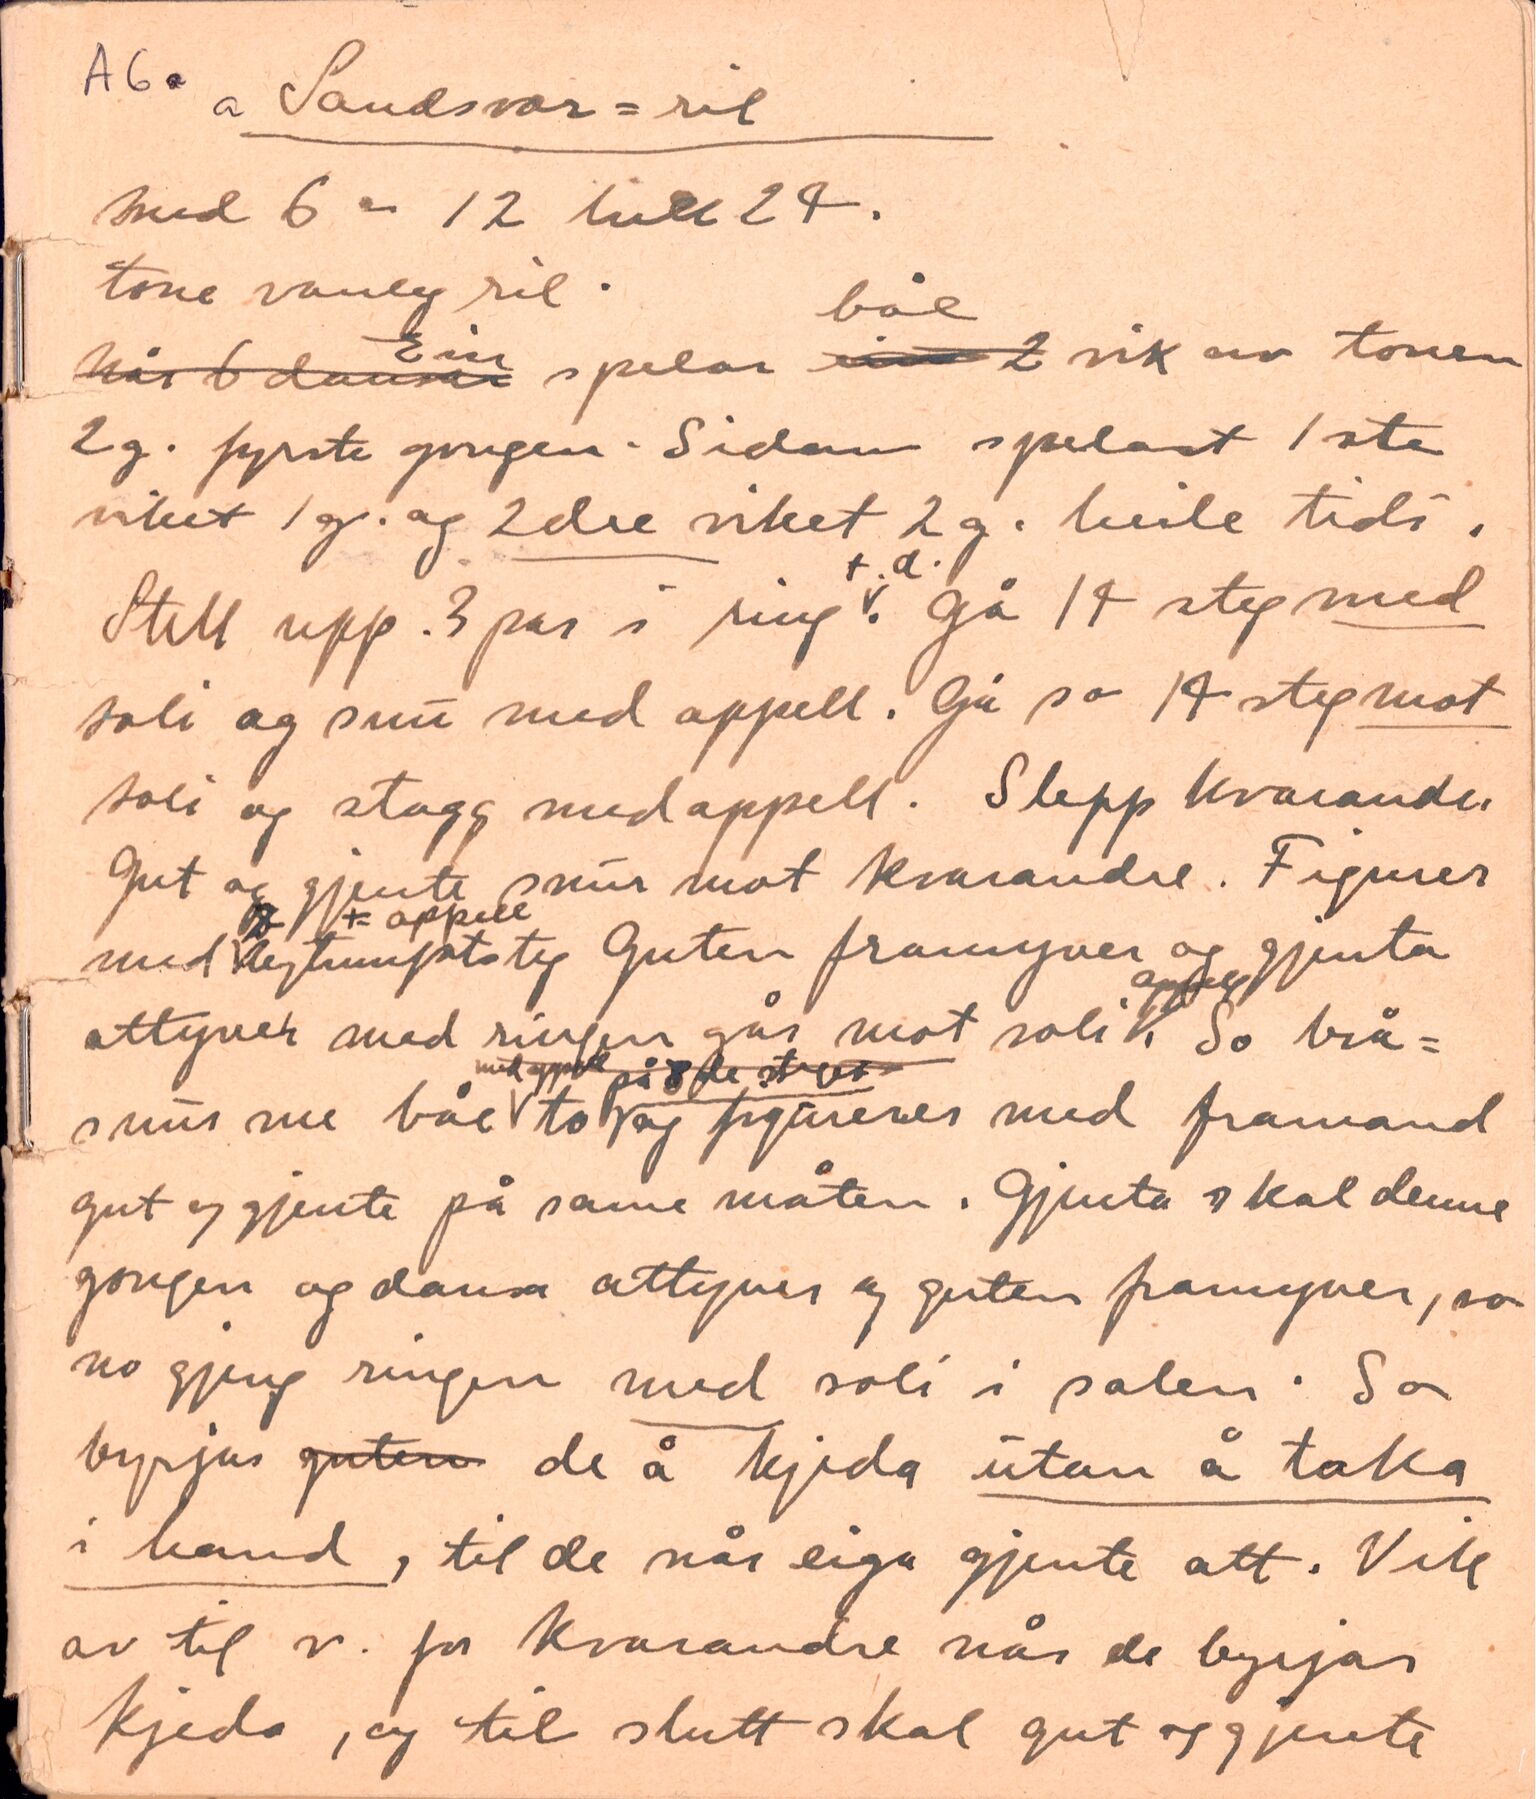 A6a
a Sandsvær=ril
med 6 - 12 heilt 24.
tone vanleg ril.
Når 6 dansar Ein spelar båe 2 vik av tonen
2 g. fyrste gongen. Sidan spelast 1ste
viket 1 g. og 2dre viket 2 g. heile tidi.
Still upp. 3 par i ring t.d. Gå 14 steg med
soli og snu med appell. Gå so 14 steg mot
soli og stogg med appell. Slepp kvarandre
Gut og gjente snur mot kvarandre. Figurer
med 7 + appell steg Guten framyver og gjenta
attyver med ringen går mot soli appell. So brå=
snur me båe med appell to på 8de steget og figurerer med framand
gut og gjente på same måten. Gjenta skal denne
gongen og dansa attyver og guten framyver, so
no gjeng ringen med soli i salen. So
byrjar guten de å kjeda utan å taka
i hand, til de når eiga gjente att. Vik
av til v. for kvarandre når de byrjar
kjeda, og til slutt skal gut og gjente